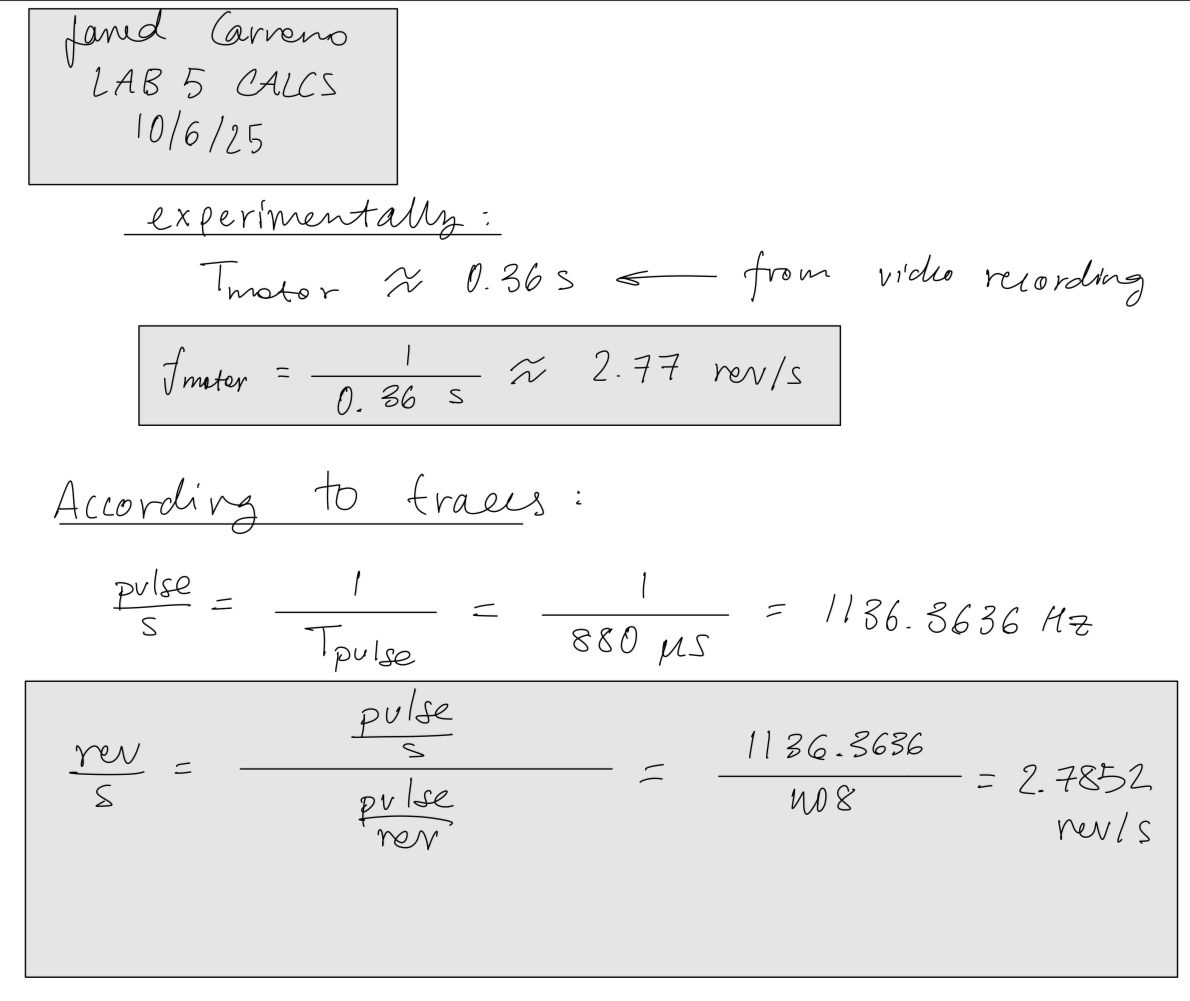 Jared Carreno
LAB 5 CALCS
10/6/25
experimentally:
T_motor ≈ 0.36 s ← from video recording
f_motor = 1 / 0.36 s ≈ 2.77 rev/s
According to traces:
pulse/s = 1 / T_pulse = 1 / 880 μs = 1136.3636 Hz
rev/s = (pulse/s) / (pulse/rev) = 1136.3636 / 408 = 2.7852 rev/s